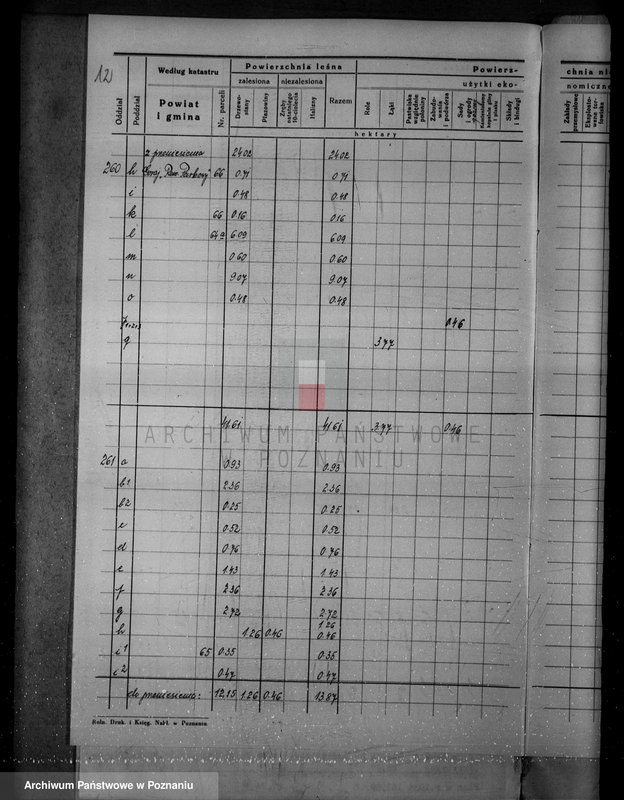 12
Oddział
Poddział
Według katastru
Powiat
i gmina
Nr. parceli
Powierzchnia leśna
zalesiona
niezalesiona
Drzewostany
Płazowiny
Halizny
Razem
Powierz-
użytki eko-
Role
Łąki
Pastwiska
Sady
i ogrody
Składy
i bindugi
chnia nie
nomiczne
Zakłady
przemysłowe
hektary
z przeniesienia 24 02 24 02
260 h 66 0.71 0.71
i 0.48 0.48
k 66 0.16 0.16
l 64a 6.09 6.09
m 0.60 0.60
n 9.07 9.07
o 0.48 0.48
0.46
q 3.77
41.61 41.61 3.77 0.46
261 a 0.93 0.93
b1 2.36 2.36
b2 0.25 0.25
c 0.52 0.52
d 0.76 0.76
e 1.43 1.43
f 2.36 2.36
g 2.72 2.72
h 1.26 0.46 1.26 0.46
i1 65 0.35 0.35
i2 0.47 0.47
do przeniesienia: 12,15 1.26 0.46 13.87
Roln. Druk. i Księg. Nakł. w Poznaniu
ARCHIWUM PAŃSTWOWE
W POZNANIU
Archiwum Państwowe w Poznaniu